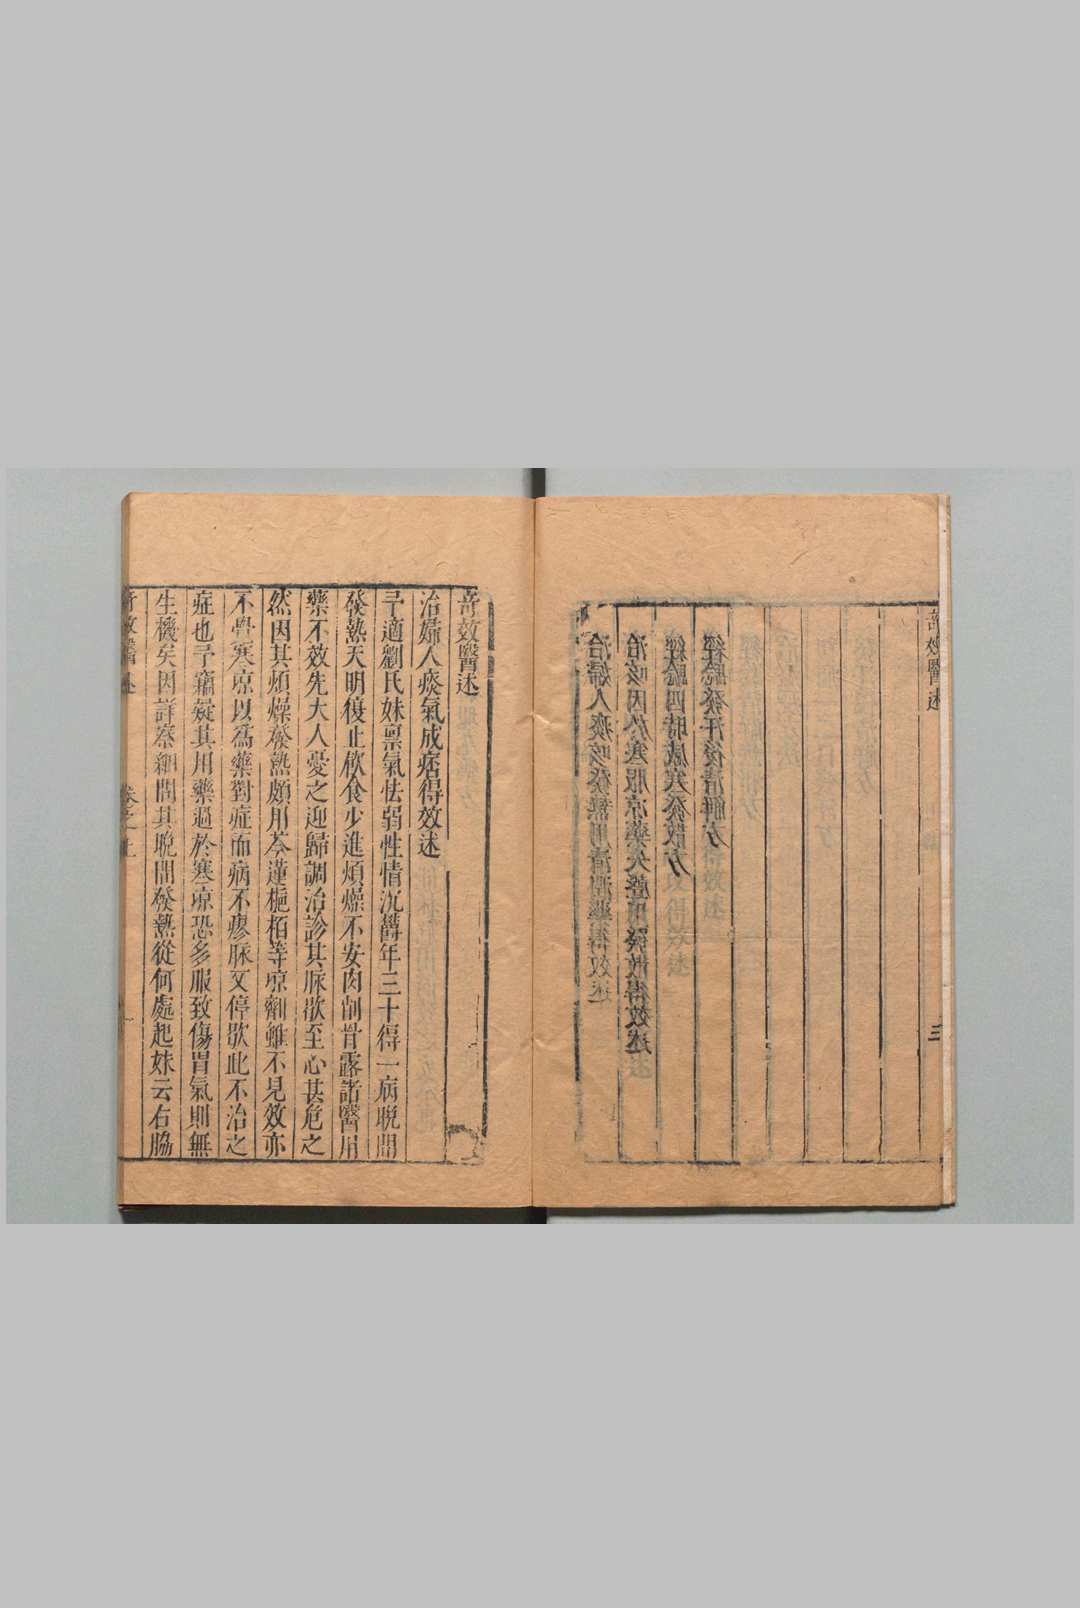 奇效醫述
三
治婦人痰咳發熱用清潤藥得效述
治咳因於寒服凉藥失聲用發散得效述
經驗四時感寒發散方
經驗發汗後清解方
奇效醫述
治婦人痰氣成痞得效述
予適劉氏妹禀氣怯弱性情沉欝年三十得一病晩間
發熱天明復止飲食少進煩燥不安肉削骨露諸醫用
藥不效先大人憂之迎歸調治診其脉欲至心甚危之
然因其煩燥發熱頗用芩連梔栢等凉劑雖不見效亦
不覺寒凉以爲藥對症而病不瘳脉又停歇此不治之
症也予竊疑其用藥過於寒凉恐多服致傷胃氣則無
生機矣因詳察細問其晩間發熱從何處起妹云右脇
奇效醫述
卷之上
一